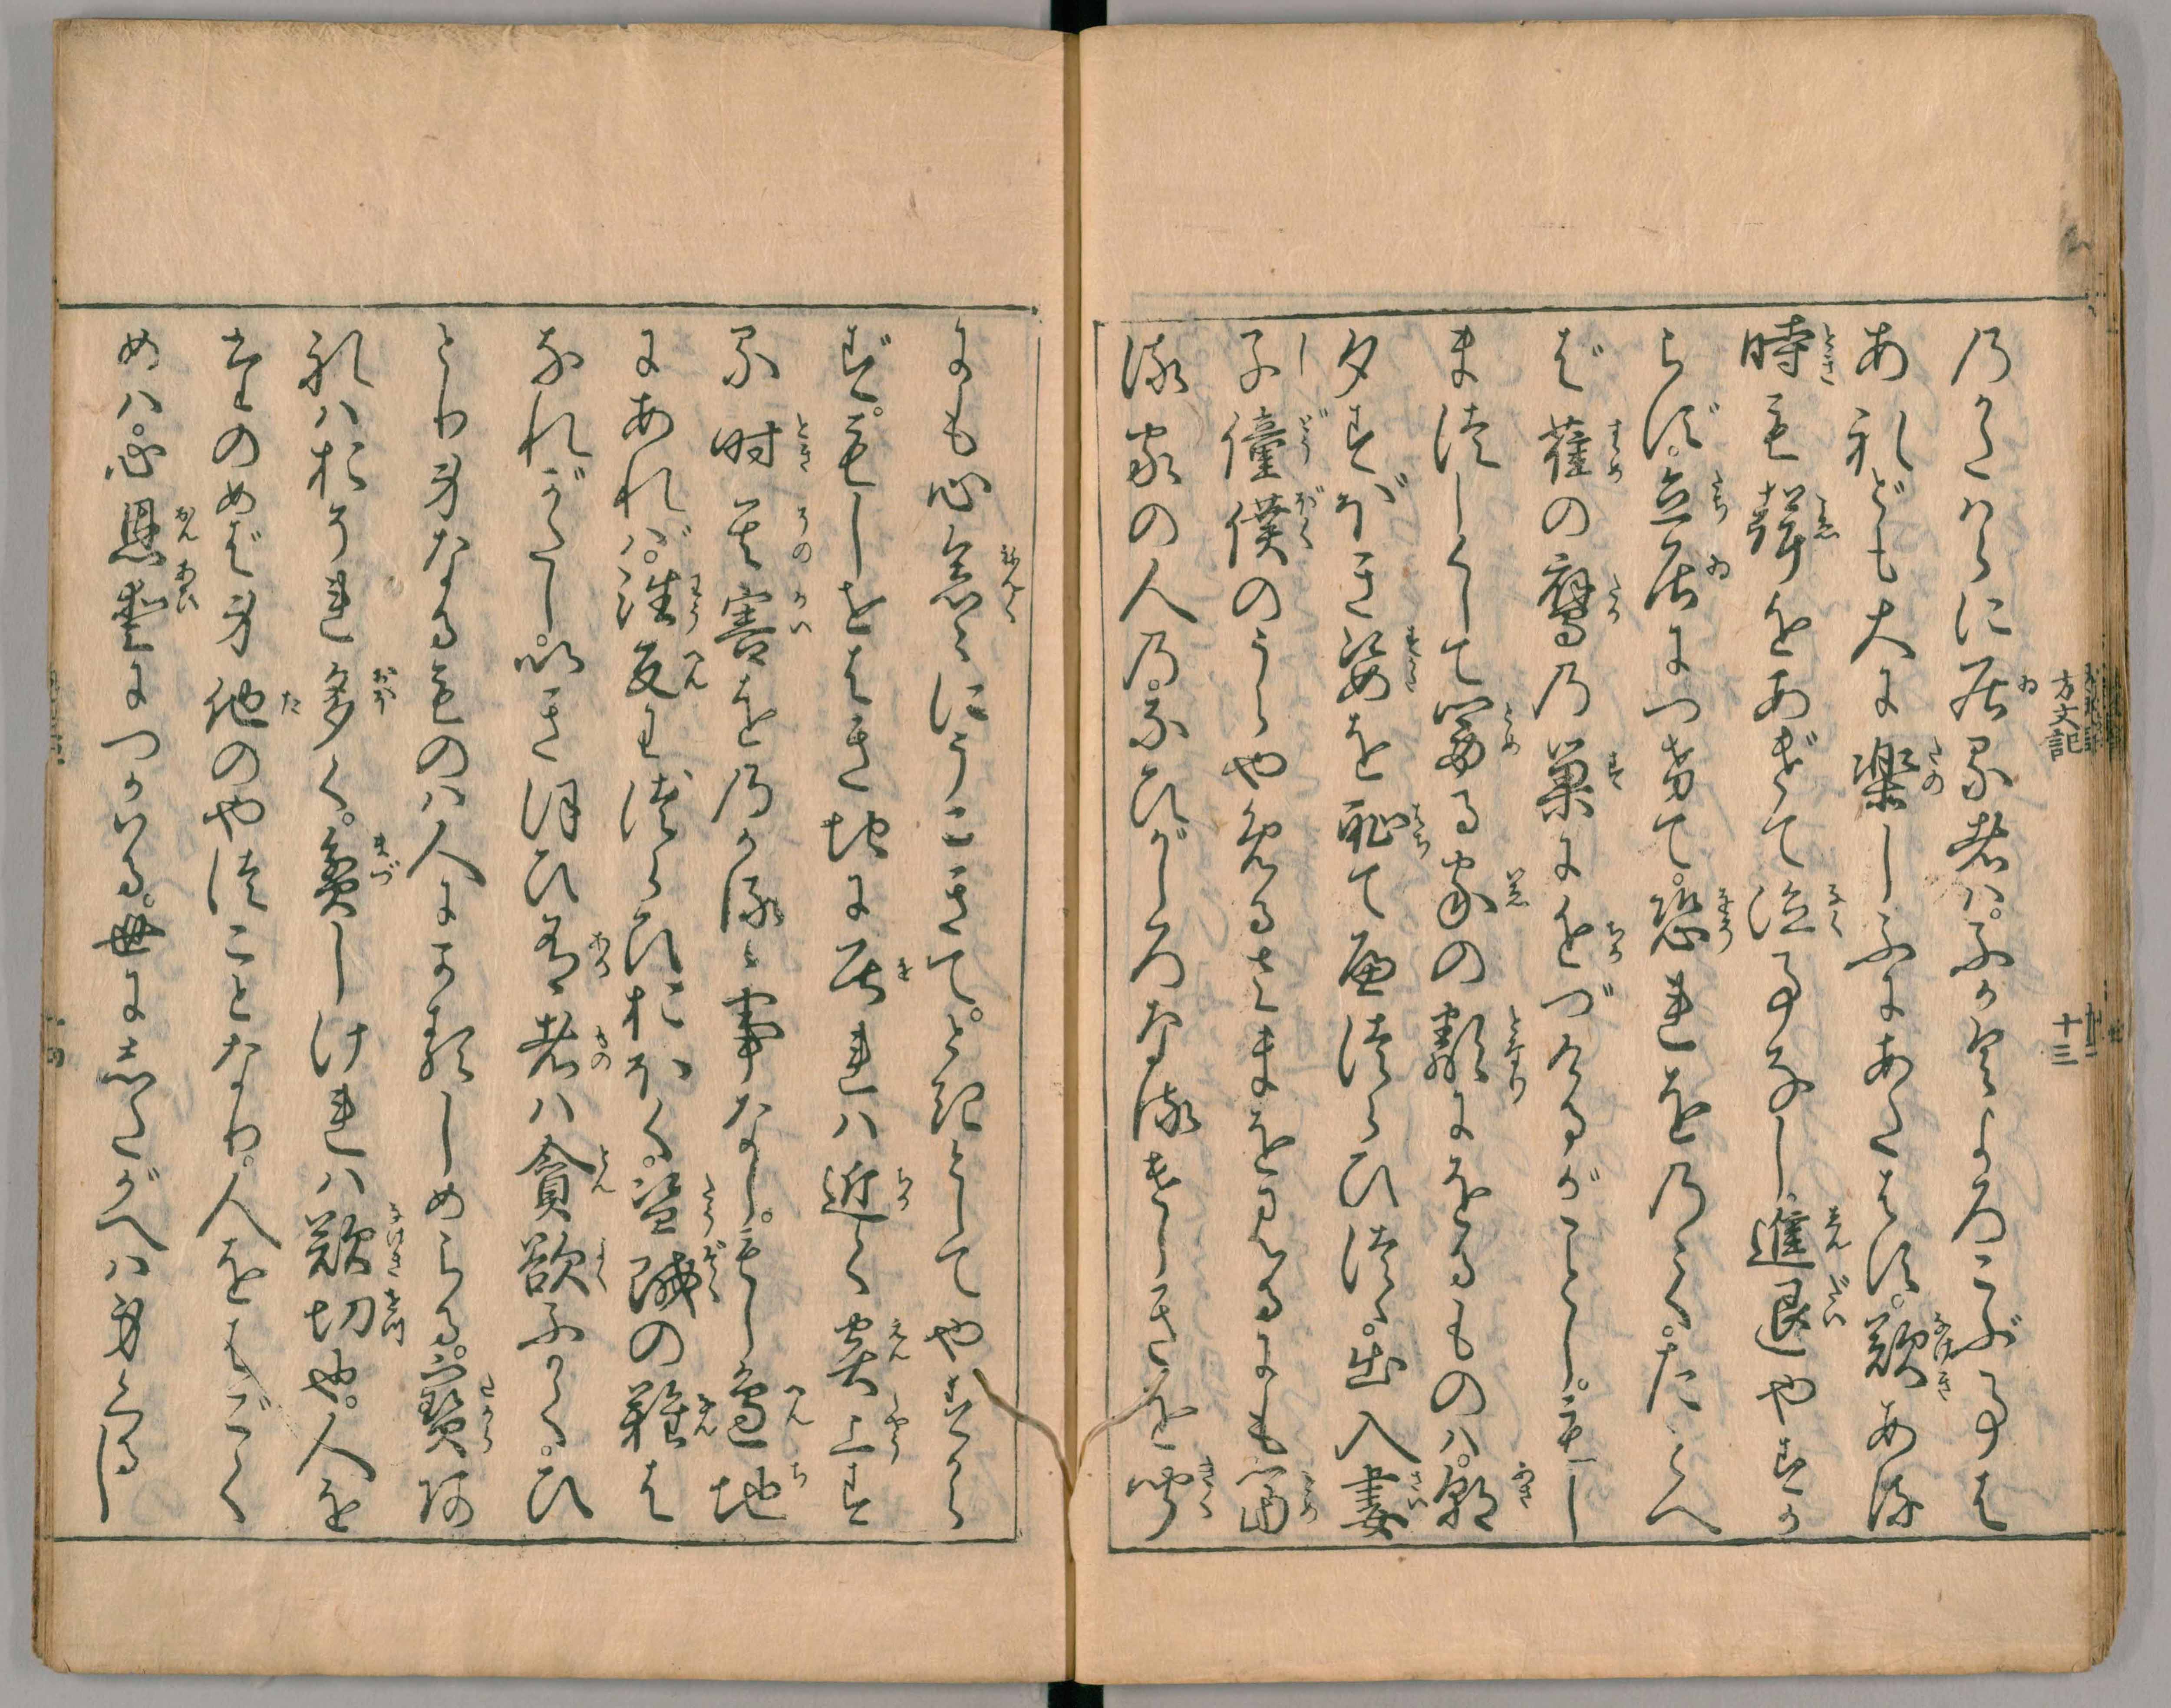 のかたはらに居る者ハ。ふかくよろこぶ事は
あれども大に楽しふにあたはす。歎ある
時も聲をあげて泣事なし。進退やすか
らず。立居につけて。恐れをのゝく。たとへ
ば。雀の鷹の巣にちかづけるがことし。もし
まつしくして冨る家の隣にをるものハ。朝
夕すぼき姿を恥てへつらひつゝ。出入妻
子僮僕のうらやめるさまをみるにも冨
る家の人の。ないがしろなるけしきを聞
にも心念〻にうごきて。とき として やすから
ず。もしせばき地に居れハ近く炎上す
る時其害をのがるゝ事なし。もし邊地
にあれバ。往反わづらひおほく。盗賊の難は
なれがたし。いきほひ有者ハ貪欲ふかく。ひ
とり身なるものハ人にかろしめらる。宝あ
れハおそれ多く。貧しけれハ歎切也。人を
たのめば身他のやつことなり。人をはごく
めハ。心恩愛につかハる。世にしたがへハ身くるし
方丈記
十三